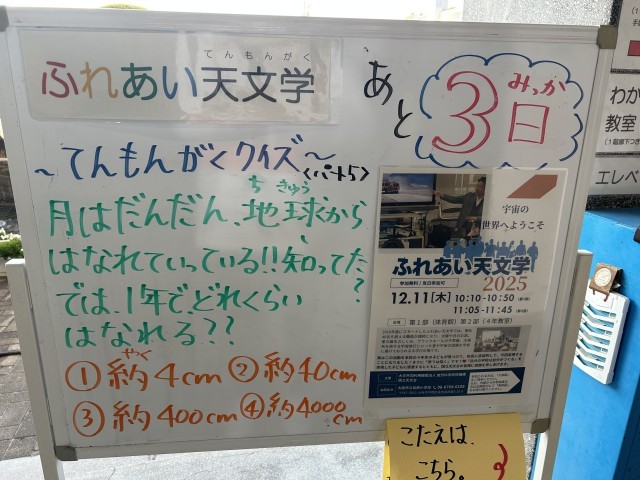 てんもんがく
ふれあい天文学
あと
みっか
3日
～てんもんがくクイズ～
〈パート5〉
ち きゅう
月はだんだん、地球から
はなれていっている!!知ってた?
では、1年で、どれくらい
はなれる??
やく
①約4cm ②約40cm
③約400cm ④約4000cm
宇宙の
世界へようこそ
ふれあい天文学
2025
参加無料/当日参加可
12.11[木] 10:10-10:50(第1部)
11:05-11:45(第2部)
こたえは、
こちら。
わか
教室
エレベ